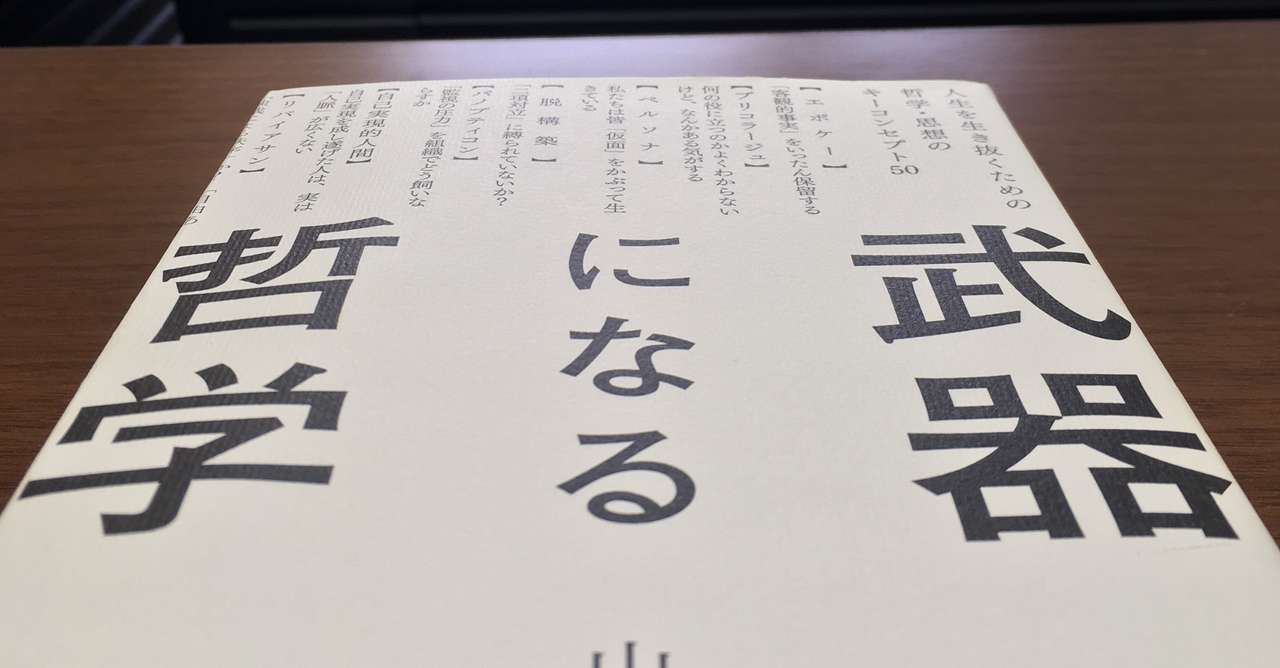 人生を生き抜くための
哲学・思想の
キーコンセプト50
【エポケー】
「客観的事実」をいったん保留する
【ブリコラージュ】
何の役に立つのかよくわからない
けど、なんかある気がする
【ペルソナ】
私たちは皆「仮面」をかぶって生
きている
【脱構築】
「二項対立」に縛られていないか？
【パノプティコン】
「監視の圧力」を組織でどう飼いな
らすか
【自己実現的人間】
自己実現を成し遂げた人は、実は
「人脈」が広くない
【リバイアサン】
武器
になる
哲学
山